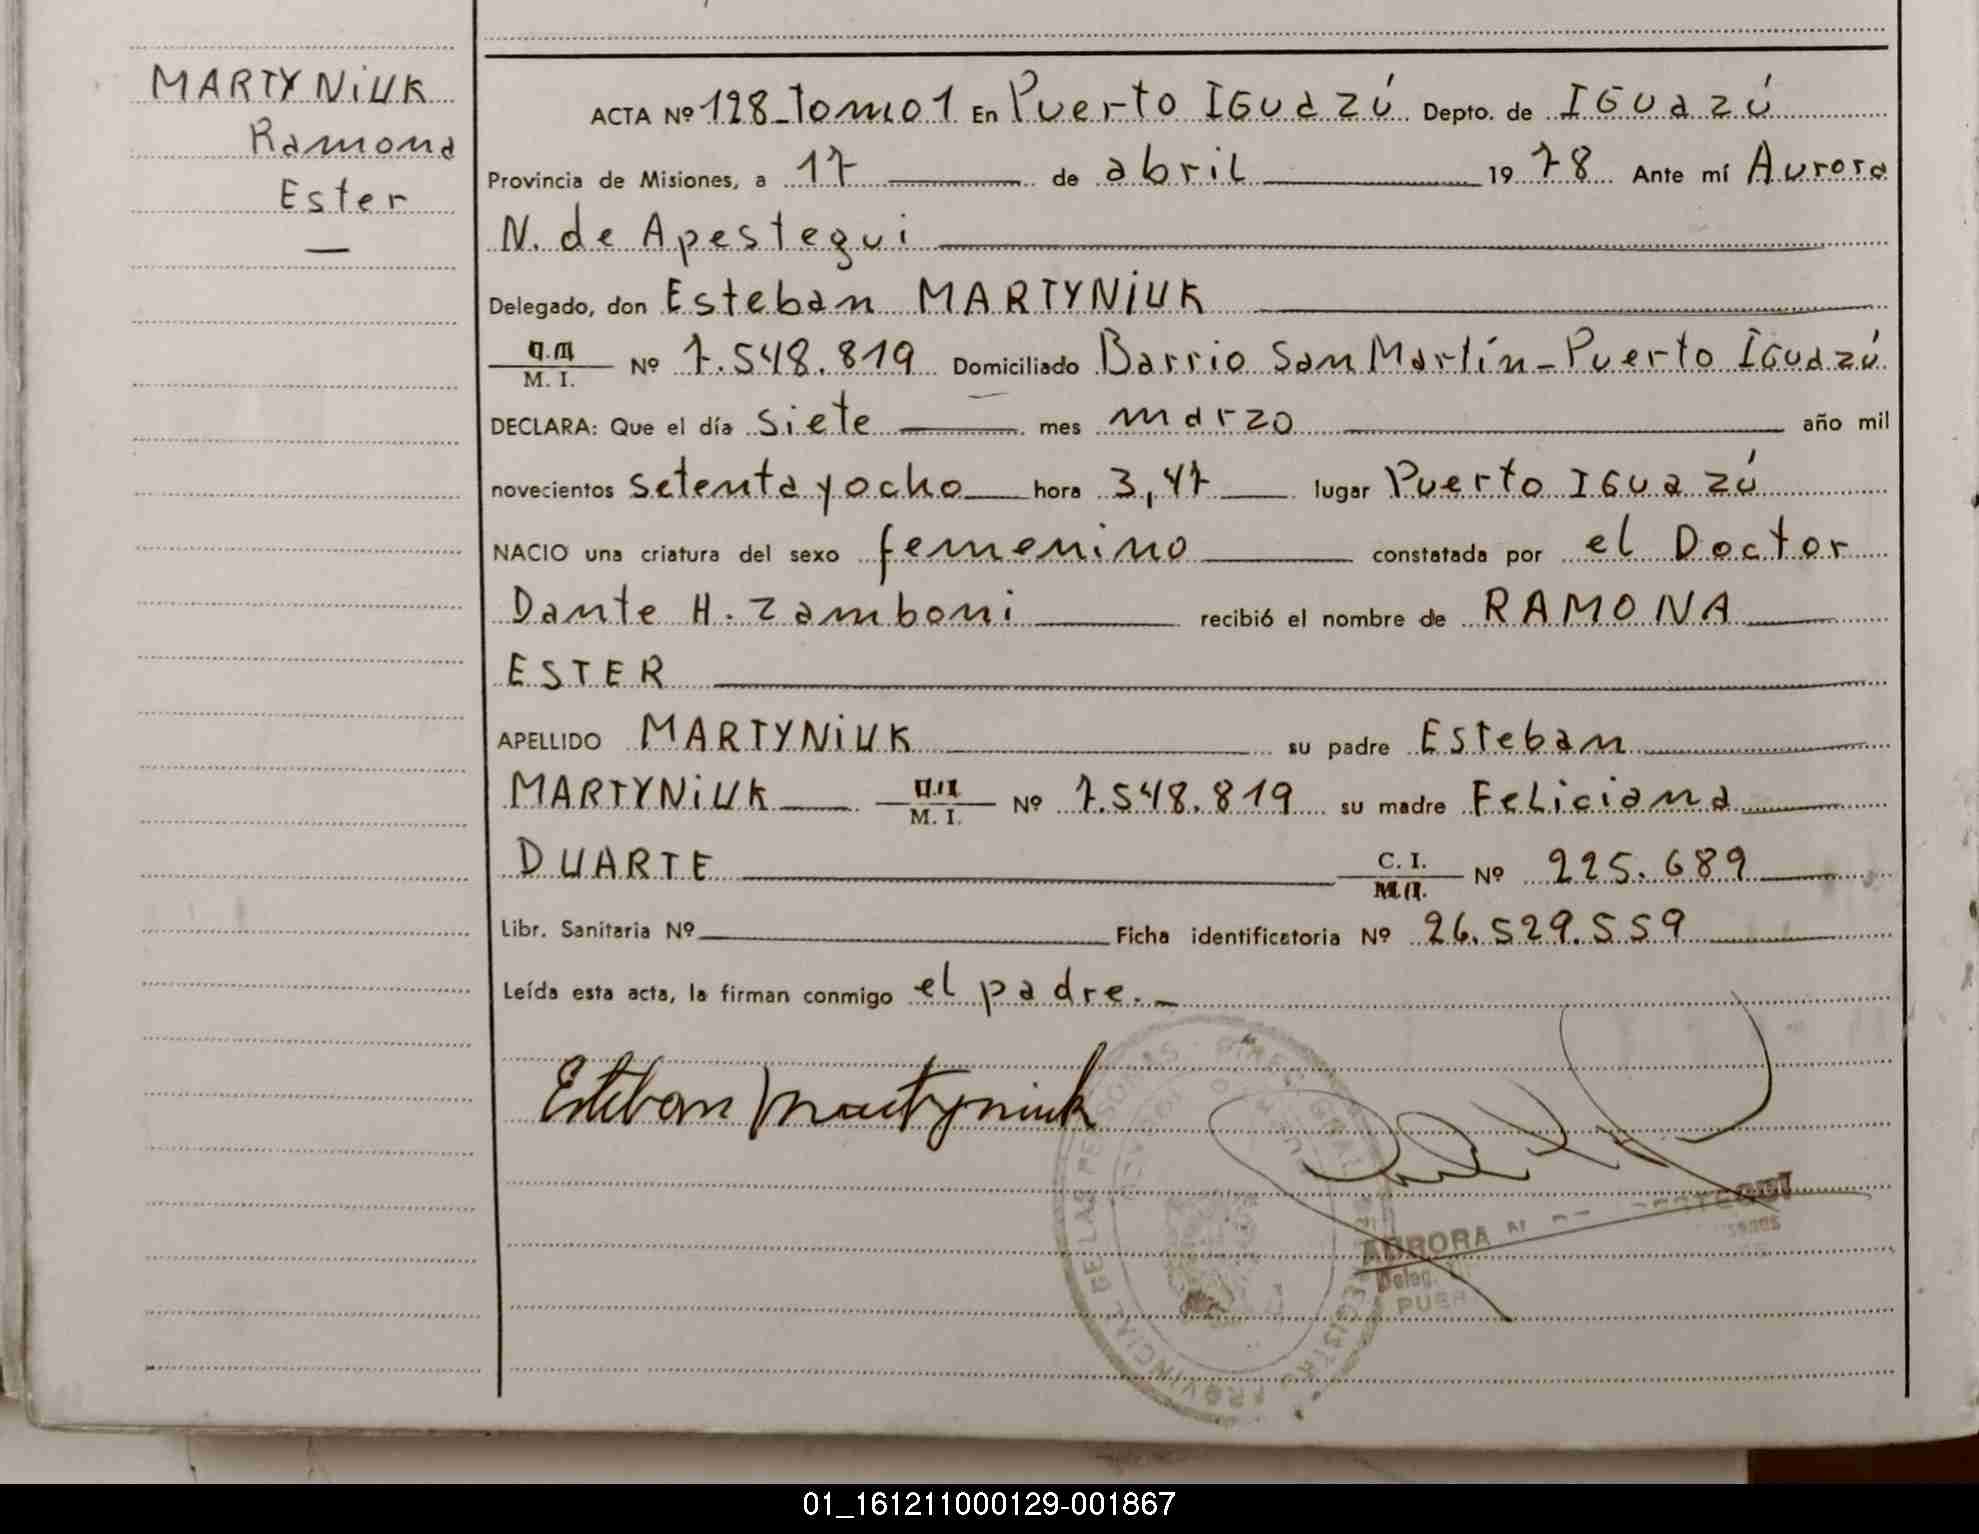 MARTYNIUK
Ramona
Ester
ACTA Nº 128_Tomo 1 En Puerto IGUAZÚ Depto. de IGUAZÚ
Provincia de Misiones, a 17 de abril 1978 Ante mí Aurora
N. de Apestegui
Delegado, don Esteban MARTYNIUK
M. I. Nº 7.548.819 Domiciliado Barrio San Martín - Puerto IGUAZÚ
DECLARA: Que el día siete mes marzo año mil
novecientos setenta y ocho hora 3,47 lugar Puerto IGUAZÚ
NACIO una criatura del sexo femenino constatada por el Doctor
Dante H. Zamboni recibió el nombre de RAMONA
ESTER
APELLIDO MARTYNIUK su padre Esteban
MARTYNIUK M. I. Nº 7.548.819 su madre Feliciana
DUARTE C. I. Nº 225.689
Libr. Sanitaria Nº Ficha identificatoria Nº 26.529.559
Leída esta acta, la firman conmigo el padre._
Esteban Martyniuk
AURORA
Deleg.
01_161211000129-001867